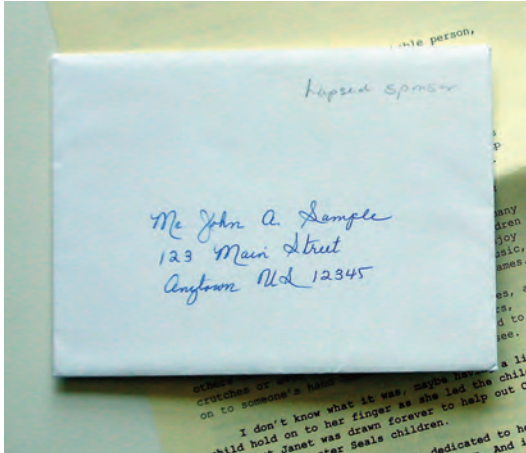 ible person,
lapsed sponsor
Mr John A. Sample
123 Main Street
Anytown US 12345
many
dren
joy
usic,
ames.
es, a
rs,
d to
see.
others
crutches or
on to someone's hand
I don't know what it was, maybe
a li
child hold on to her finger as she led the chil
t Janet was drawn forever to help out
ter Seals children.
dedicated to he
And